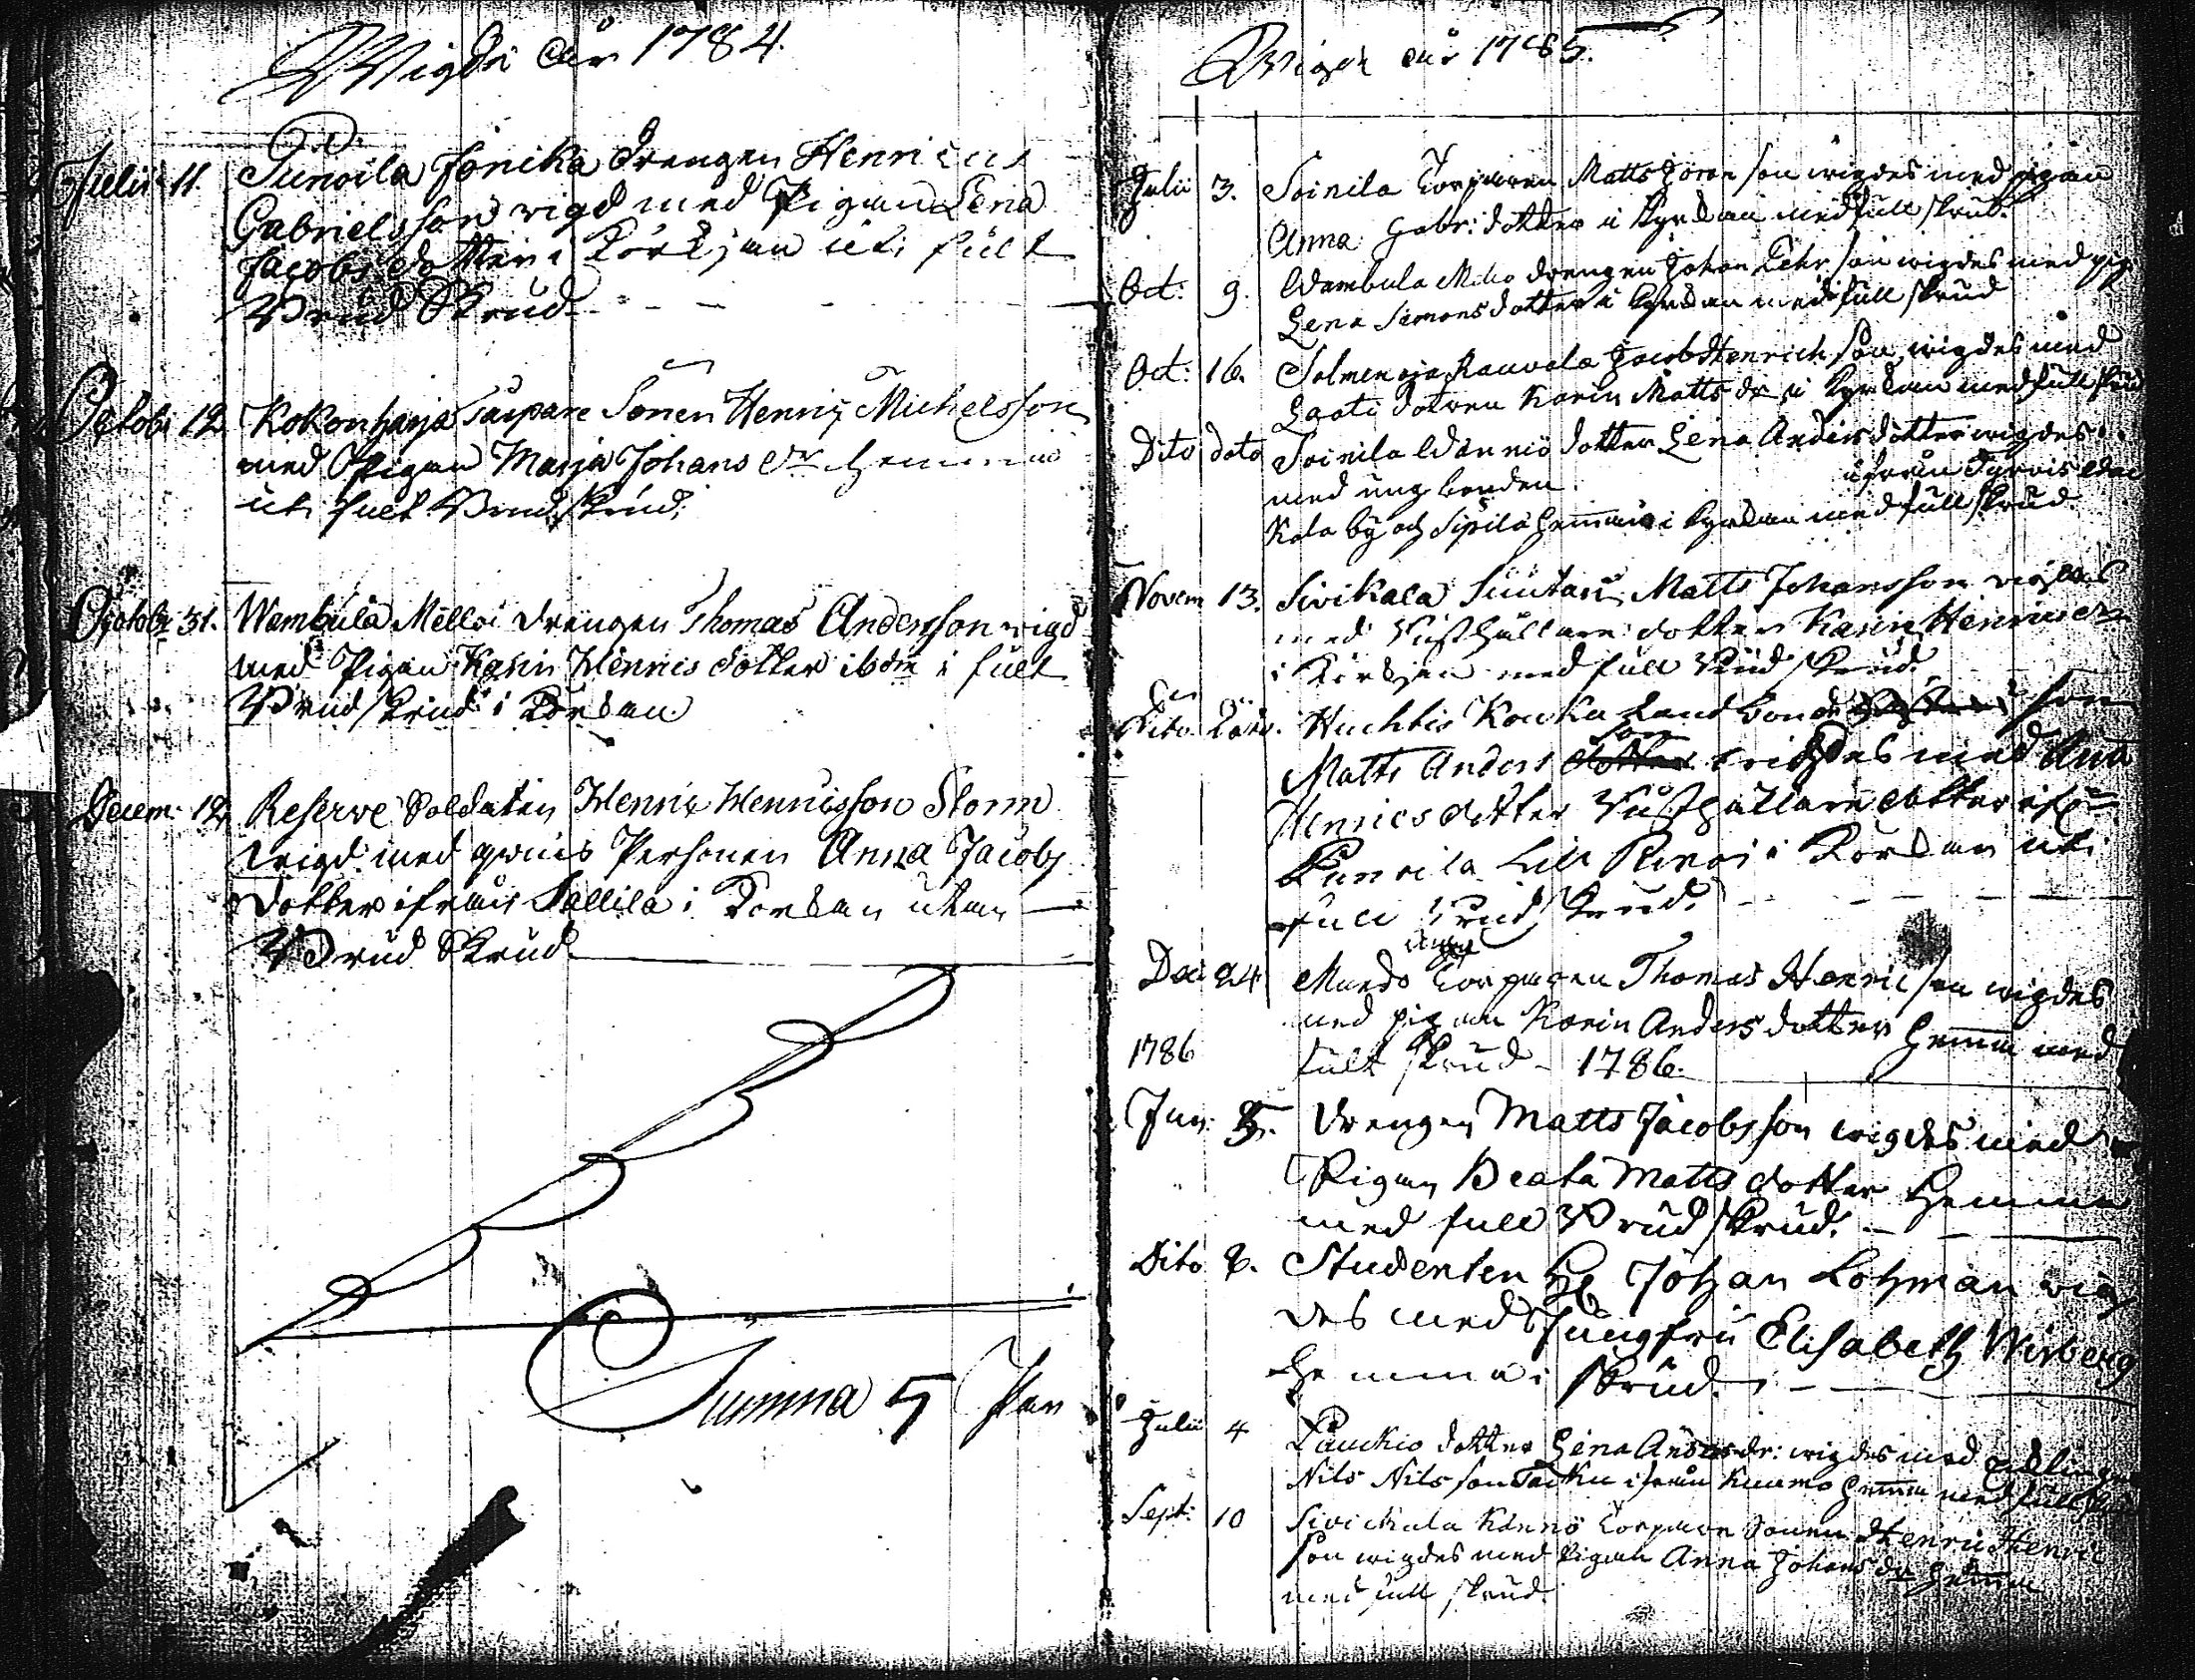 Wigde åhr 1784.
Julii 11. Punoila Jonika Drengen Henricus
Gabrielsson vigd med Pigan Lena
Jacobs dotter i Körkjan uti fult
Brud Skrud
Octobr 12 Kokonharja Sonen Henric Michelsson
med Pigan Marja Johans dr hemma
uti fult Brudskrud.
Octobr 31. Wambula Melloi Drengen Thomas Andersson vigd
med Pigan Karin Henrics dotter ibdm i fult
Brudskrud i Körkan
Decem: 12 Reserve Soldaten Henric Henricsson Storm
wigd med qwins Personen Anna Jacobs
dotter ifrån Sallila i Körkan utan
Brud Skrud
Summa 5 Par
Wigde åhr 1785.
Julii 3. Soinila Torparen Matts Jöran son wigdes med pigan
Anna Gabr: dotter i Kyrkan med full skrud.
Oct: 9. Wambula drengen Johan son wigdes med pig
Lena Simons dotter i Kyrkan med full skrud
Oct: 16. Solmenoja Rauvola Jacob Henrich son wigdes med
dotren Karin Matts dr i Kyrkan med full skrud
Dito dato Soinila dotter Lena Anders dotter wigdes
med ung bonden ifrån
Kala by och Sipilä hemman i Kyrkan med full skrud.
Novem 13. Sivikala Suutari Matts Johansson vigdes
med Rusthållare dotter Karin Henrics dr
i Körkjan med full Brud skrud.
Dito Dato. Huchtis Kouka Landbonde son
Matts Anders son dotter wigdes med Anna
Henrics dotter Rusthållare dotter ifr:
Punoila Lill i Körkan uti
full brud skrud.
Dec 24 Torparen Thomas Henricson wigdes
med pigan Karin Anders dotter hemma med
1786 fult skrud - 1786.
Jan: 5. Drengen Matts Jacobsson wigdes med
Pigan Beata Matts dotter hemma
med full Brud skrud.
Dito 8. Studenten Hr Johan Lohman wig
des med Jungfru Elisabeth Wirberg
hemma i skrud.
Julii 4 dotter Lena Anders dr: wigdes med
Nils Nilsson ifrån hemma med full skrud
Sept: 10 Sivickala Torpare Sonen Henric Henric
son wigdes med Pigan Anna Johans dr hemma
med full skrud.